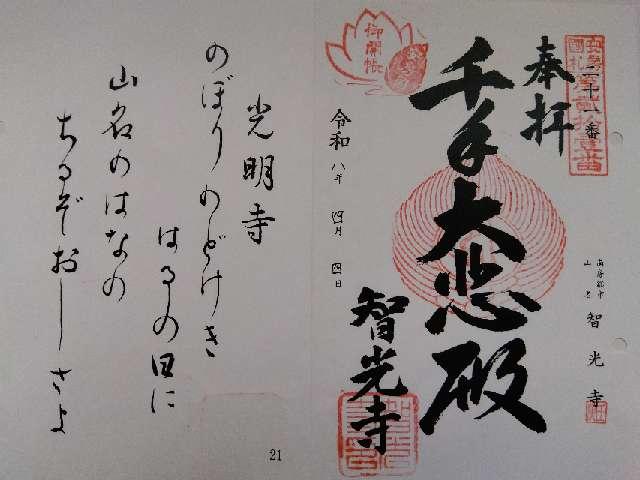 奉拝
二十一番
千手大悲殿
智光寺
令和八年 四月 四日
御開帳
智光寺
光明寺
のぼりのどけき
はるの日に
山名のはなの
ちるぞおしさよ
21